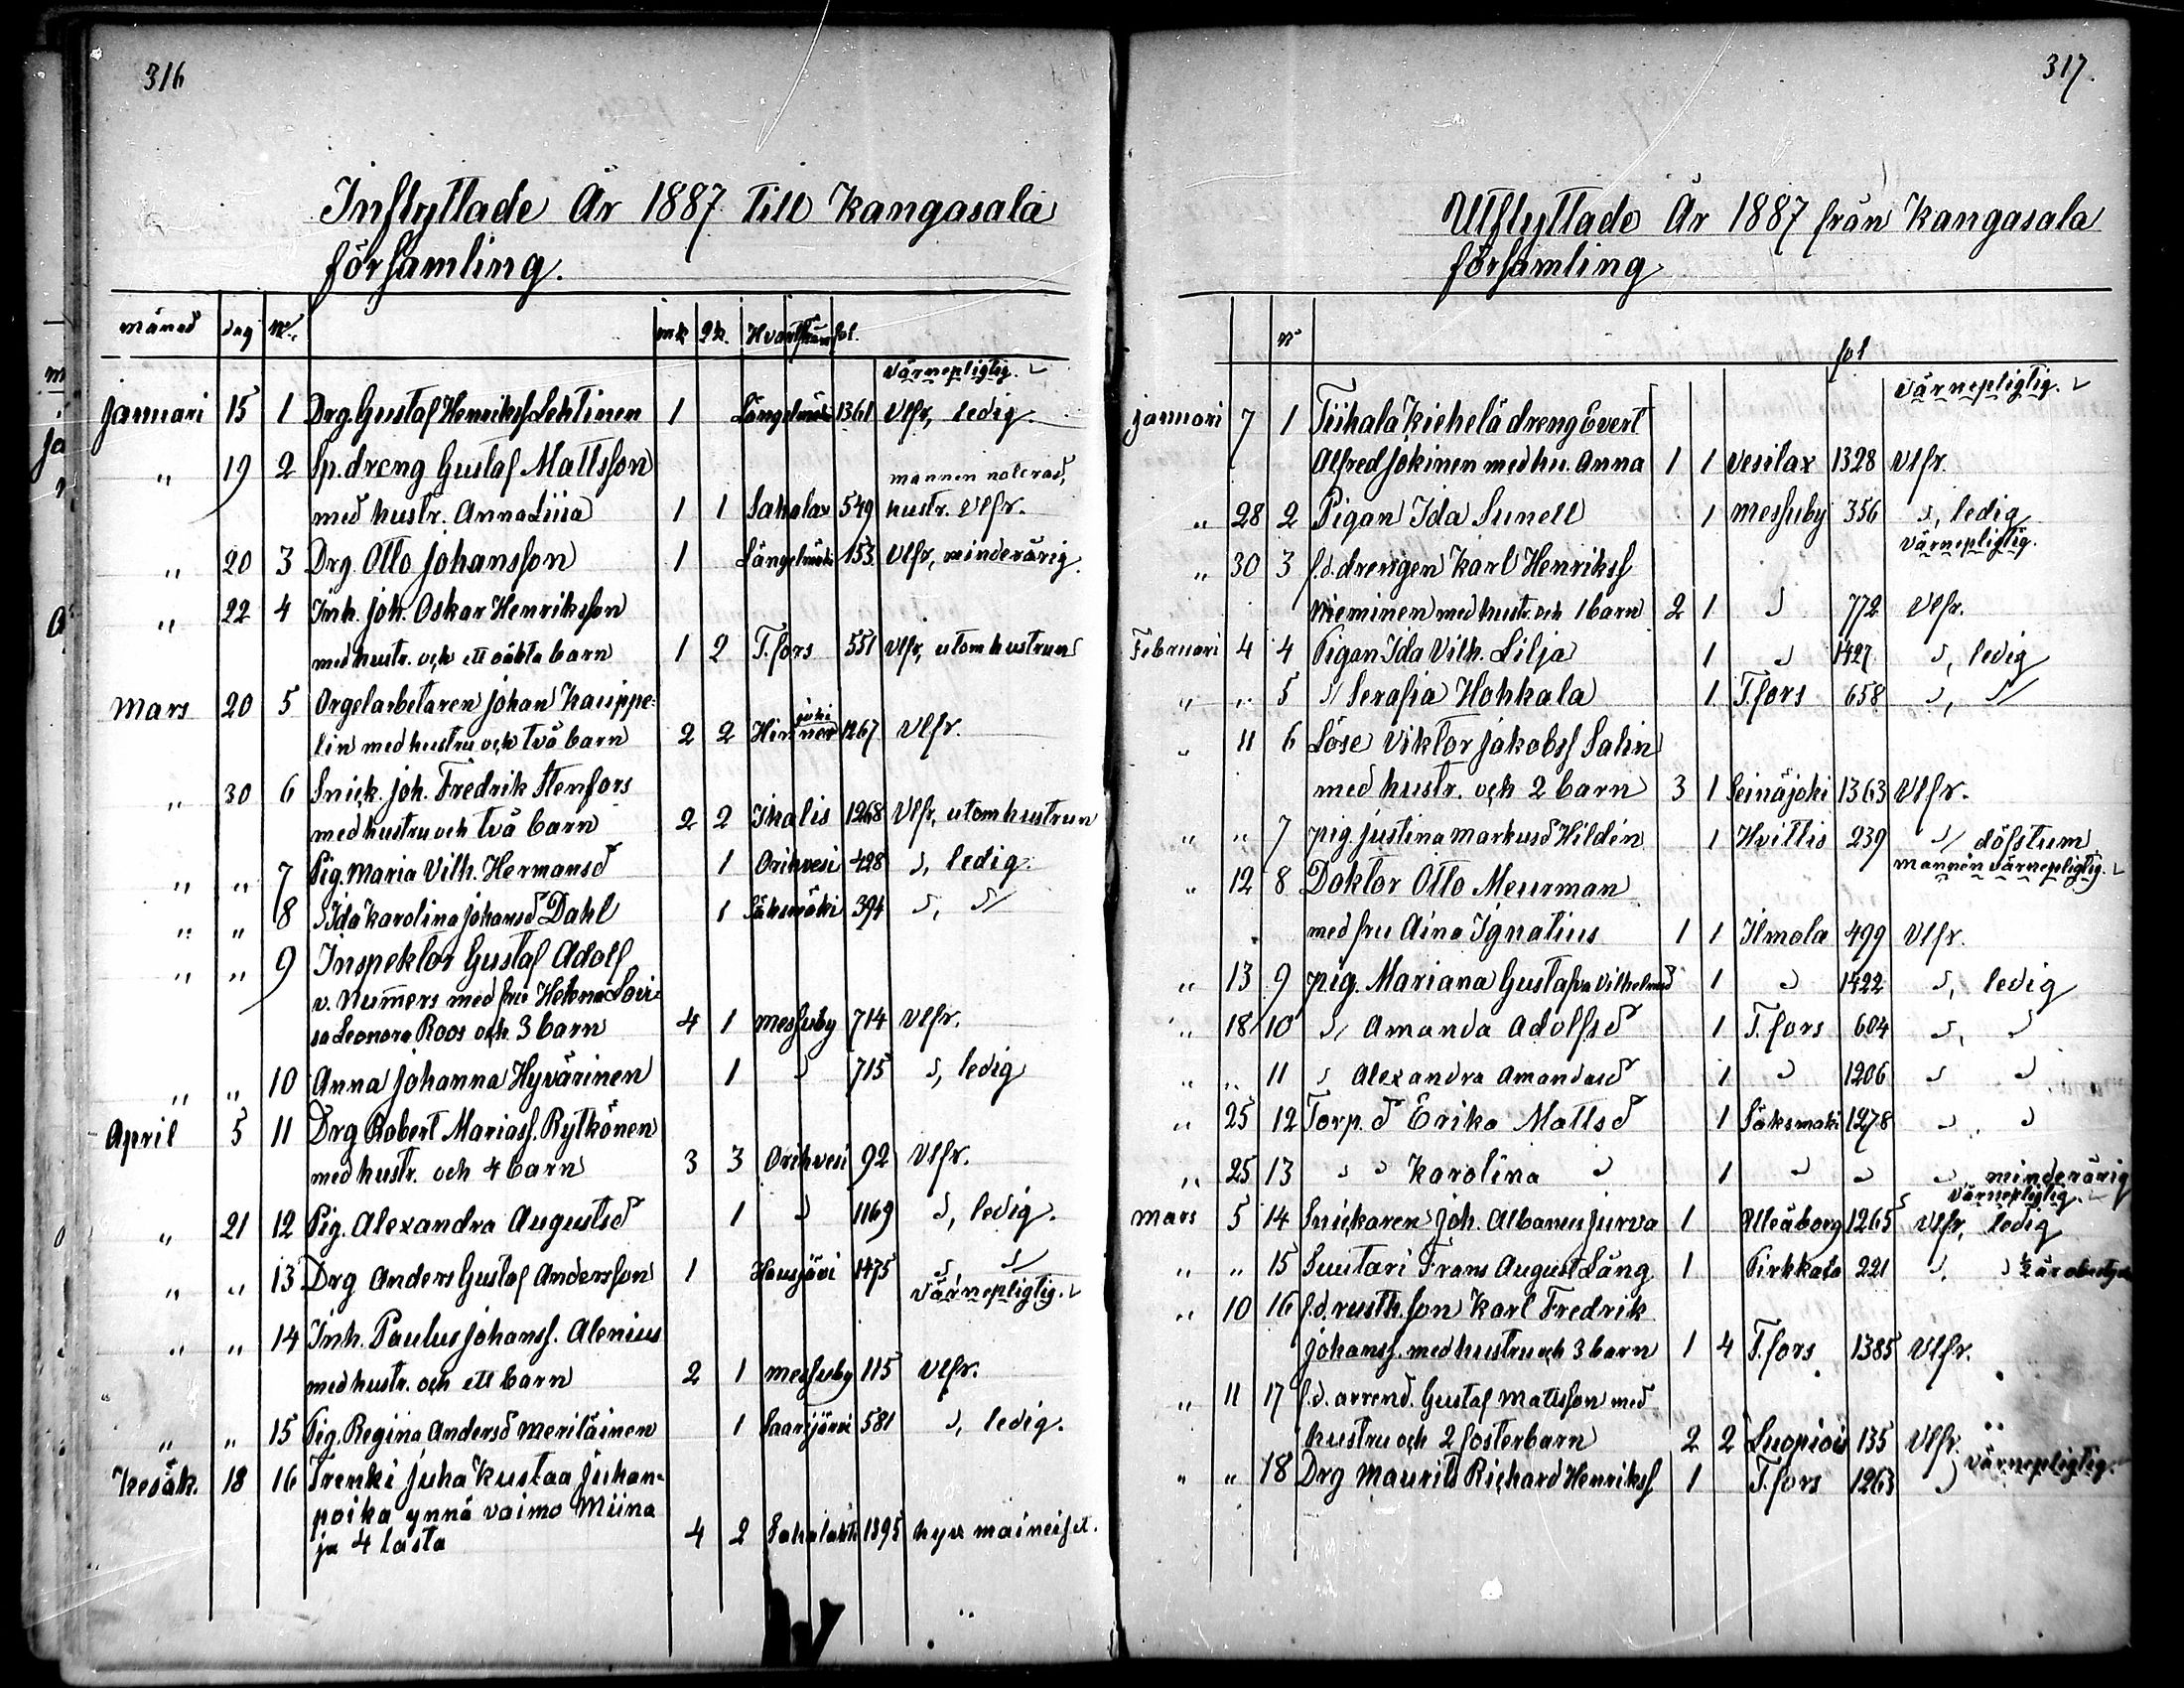 316
Inflyttade År 1887 till Kangasala
församling.
månad dag No. mk qk. Hvarifrån fol.
värnepligtig.
Januari 15 1 Drg. Gustaf Henrikss. Lehtinen 1 Längelmäki 1361 Vlfr, ledig.
" 19 2 Sp. dreng Gustaf Mattsson mannen noterad,
med hustr. Anna Liisa 1 1 Sahalax 549 hustr. Vlfr.
" 20 3 Drg. Otto Johansson 1 Längelmäki 153 Vlfr, minderårig.
" 22 4 Inh. Joh. Oskar Henriksson
med hustr. och ett oäkta barn 1 2 T.fors 551 Vlfr, utom hustrun
Mars 20 5 Orgelarbetaren Johan Kauppe-
lin med hustru och två barn 2 2 1267 Vlfr.
" 30 6 Snick. Joh. Fredrik Stenfors
med hustru och två barn 2 2 Ikalis 1268 Vlfr, utom hustrun
" " 7 Pig. Maria Vilh. Hermansd 1 Orihvesi 428 d, ledig.
" " 8 d Ida Karolina Johansd Dahl 1 Sääksmäki 394 d, d/
" " 9 Inspektor Gustaf Adolf
v. Nummers med fru Helena Lovi-
sa Leonora Roos och 3 barn 4 1 Messuby 714 Vlfr.
" " 10 Anna Johanna Hyvärinen 1 d 715 d, ledig
April 5 11 Drg Robert Mariass. Rytkönen
med hustr. och 4 barn 3 3 Orihvesi 92 Vlfr.
" 21 12 Pig. Alexandra Augustsd 1 d 1169 d, ledig.
" " 13 Drg Anders Gustaf Andersson 1 Hausjärvi 1475 d d/
värnepligtig.
" " 14 Inh. Paulus Johanss. Alenius
med hustr. och ett barn 2 1 Messuby 115 Vlfr.
" " 15 Pig. Regina Andersd Meriläinen 1 Saarijärvi 581 d, ledig.
Kesäk. 18 16 Trenki Juha Kustaa Juhan-
poika ynnä vaimo Miina
ja 4 lasta 4 2 Sahalahti 1395 hyv. maineiset.
317.
Utflyttade År 1887 från Kangasala
församling
No fol
värnepligtig.
Januari 7 1 Tiihala Kiehelä dreng Evert
Alfred Jokinen med hu. Anna 1 1 Vesilax 1328 Vlfr.
" 28 2 Pigan Ida Sunell 1 Messuby 356 d, ledig
värnepligtig.
" 30 3 f.d. drengen Karl Henrikss
Nieminen med hustr. och 1 barn 2 1 d 772 Vlfr.
Februari 4 4 Pigan Ida Vilh. Lilja 1 d 1427 d, ledig
" " 5 d/ Serafia Hohkala 1 T.fors 658 d, d/
" 11 6 Löse Viktor Jakobss Salin
med hustr. och 2 barn 3 1 Seinäjoki 1363 Vlfr.
" " 7 pig. Justina Markusd Hildén 1 Hvittis 239 d/ döfstum
mannen värnepligtig.
" 12 8 Doktor Otto Meurman
med fru Aina Ignatius 1 1 Ilmola 499 Vlfr.
" 13 9 pig. Mariana Gustafva Vilhelmsd 1 d 1422 d, ledig
" 18 10 d/ Amanda Adolfsd 1 T.fors 604 d, d
" " 11 d Alexandra Amandasd 1 d 1206 d d
" 25 12 Torp. d Erika Mattsd 1 Sääksmäki 1278 d d
" 25 13 d d Karolina d 1 d d d minderårig
värnepligtig.
Mars 5 14 Snickaren Joh. Albanus Jurva 1 Uleåborg 1265 Vlfr, ledig
" " 15 Suutari Frans August Lång 1 Pirkkala 221 d. d
" 10 16 f.d. rusth. son Karl Fredrik
Johanss. med hustru och 3 barn 1 4 T.fors 1385 Vlfr.
" 11 17 f.d. arrend. Gustaf Mattsson med
hustru och 2 fosterbarn 2 2 Luopiois 135 Vlfr.
värnepligtig.
" " 18 Drg Maurits Richard Henrikss. 1 T.fors 1263 d